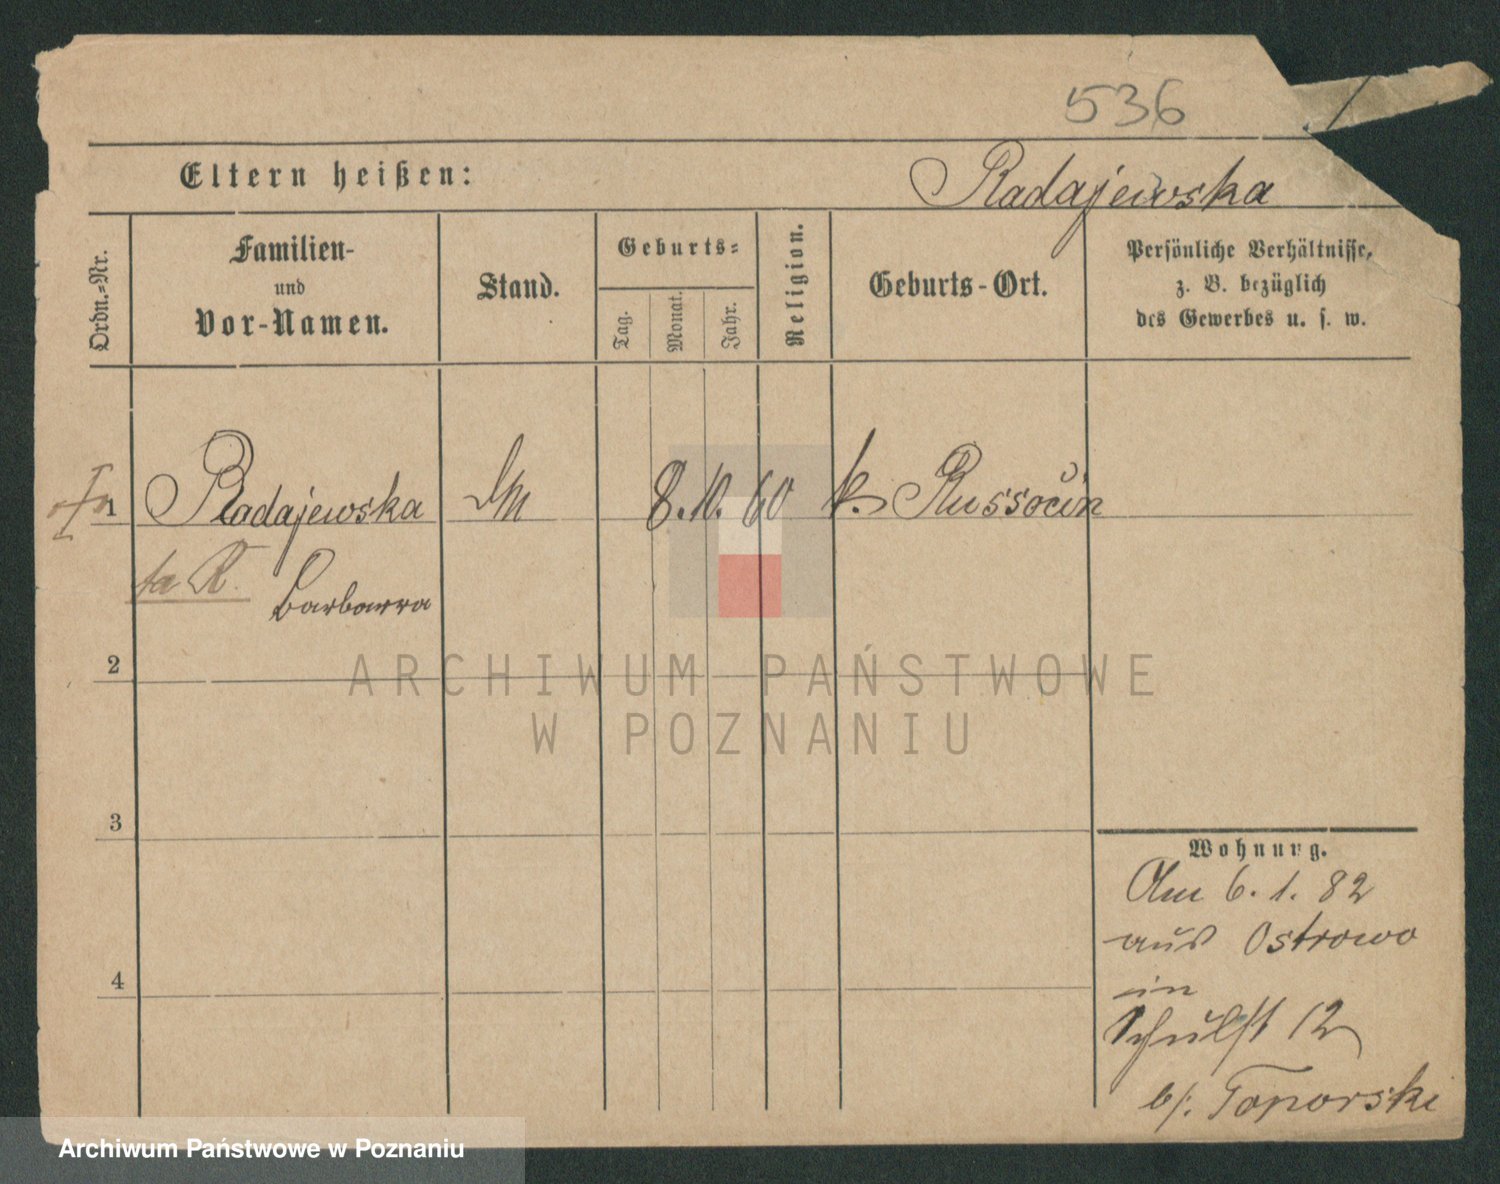 536
Eltern heißen:
Radajewska
Ordn.-Nr.
Familien-
und
Vor-Namen.
Stand.
Geburts-
Tag.
Monat.
Jahr.
Religion.
Geburts-Ort.
Persönliche Verhältnisse,
z. B. bezüglich
des Gewerbes u. s. w.
1
Radajewska
8. 10. 60
k.
Russocin
ta R.
Barbarra
2
ARCHIWUM PAŃSTWOWE
W POZNANIU
3
Wohnung.
Am 6. 1. 82
aus Ostrowo
4
in
Schulst 12
b/. Toporski
Archiwum Państwowe w Poznaniu